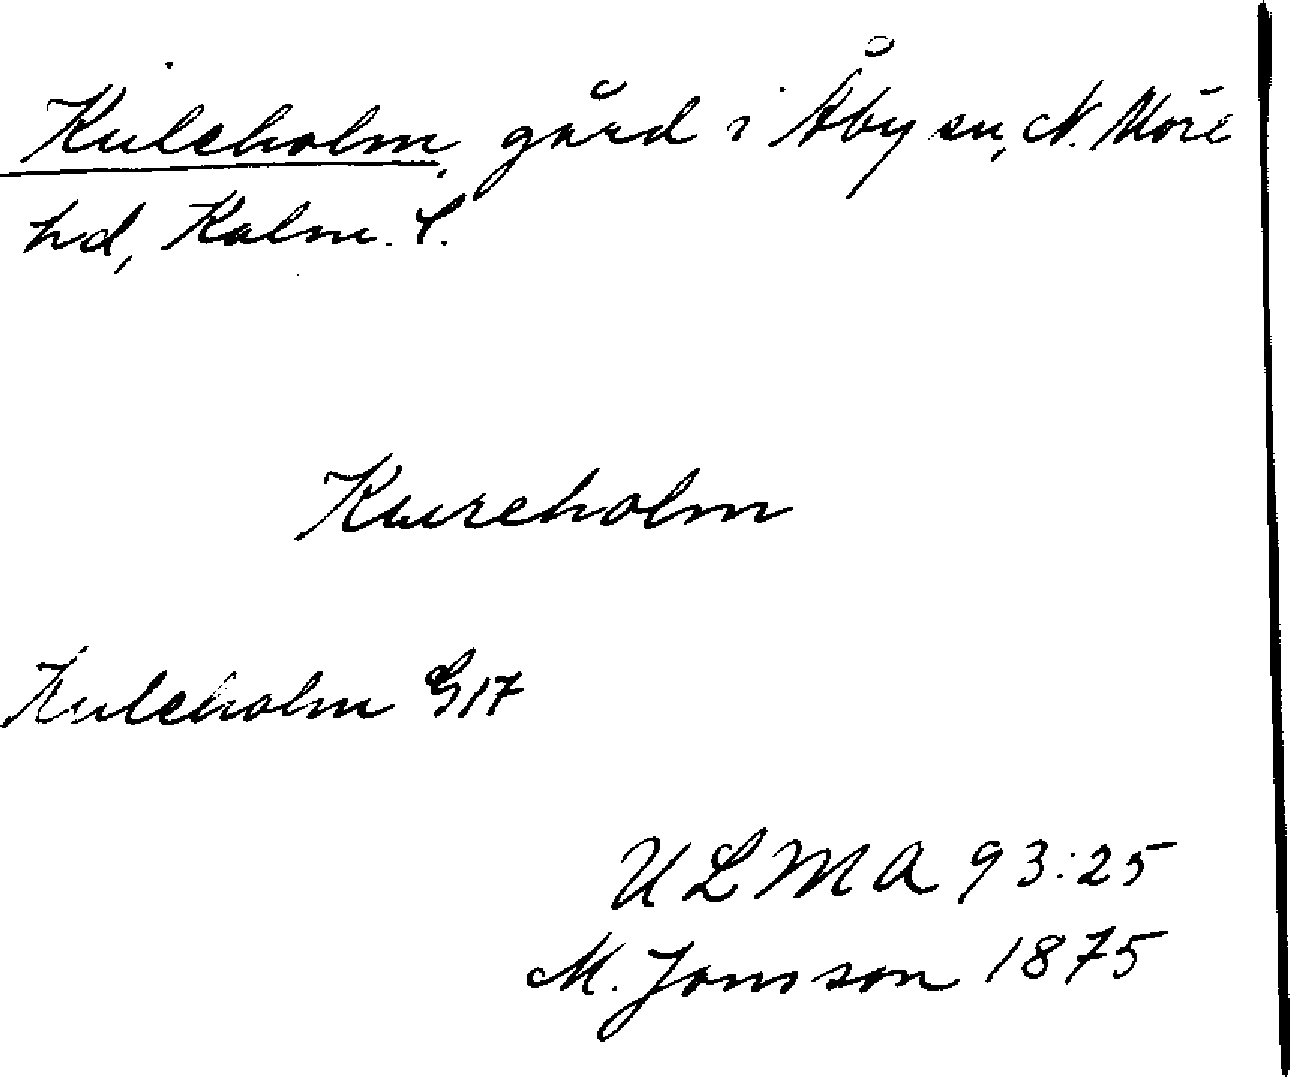 Kuleholm, gård i Åby sn, N. Möre
hd, Kalm. l.
Kureholm
Kuleholm G17
ULMA 93:25
M. Jonsson 1875